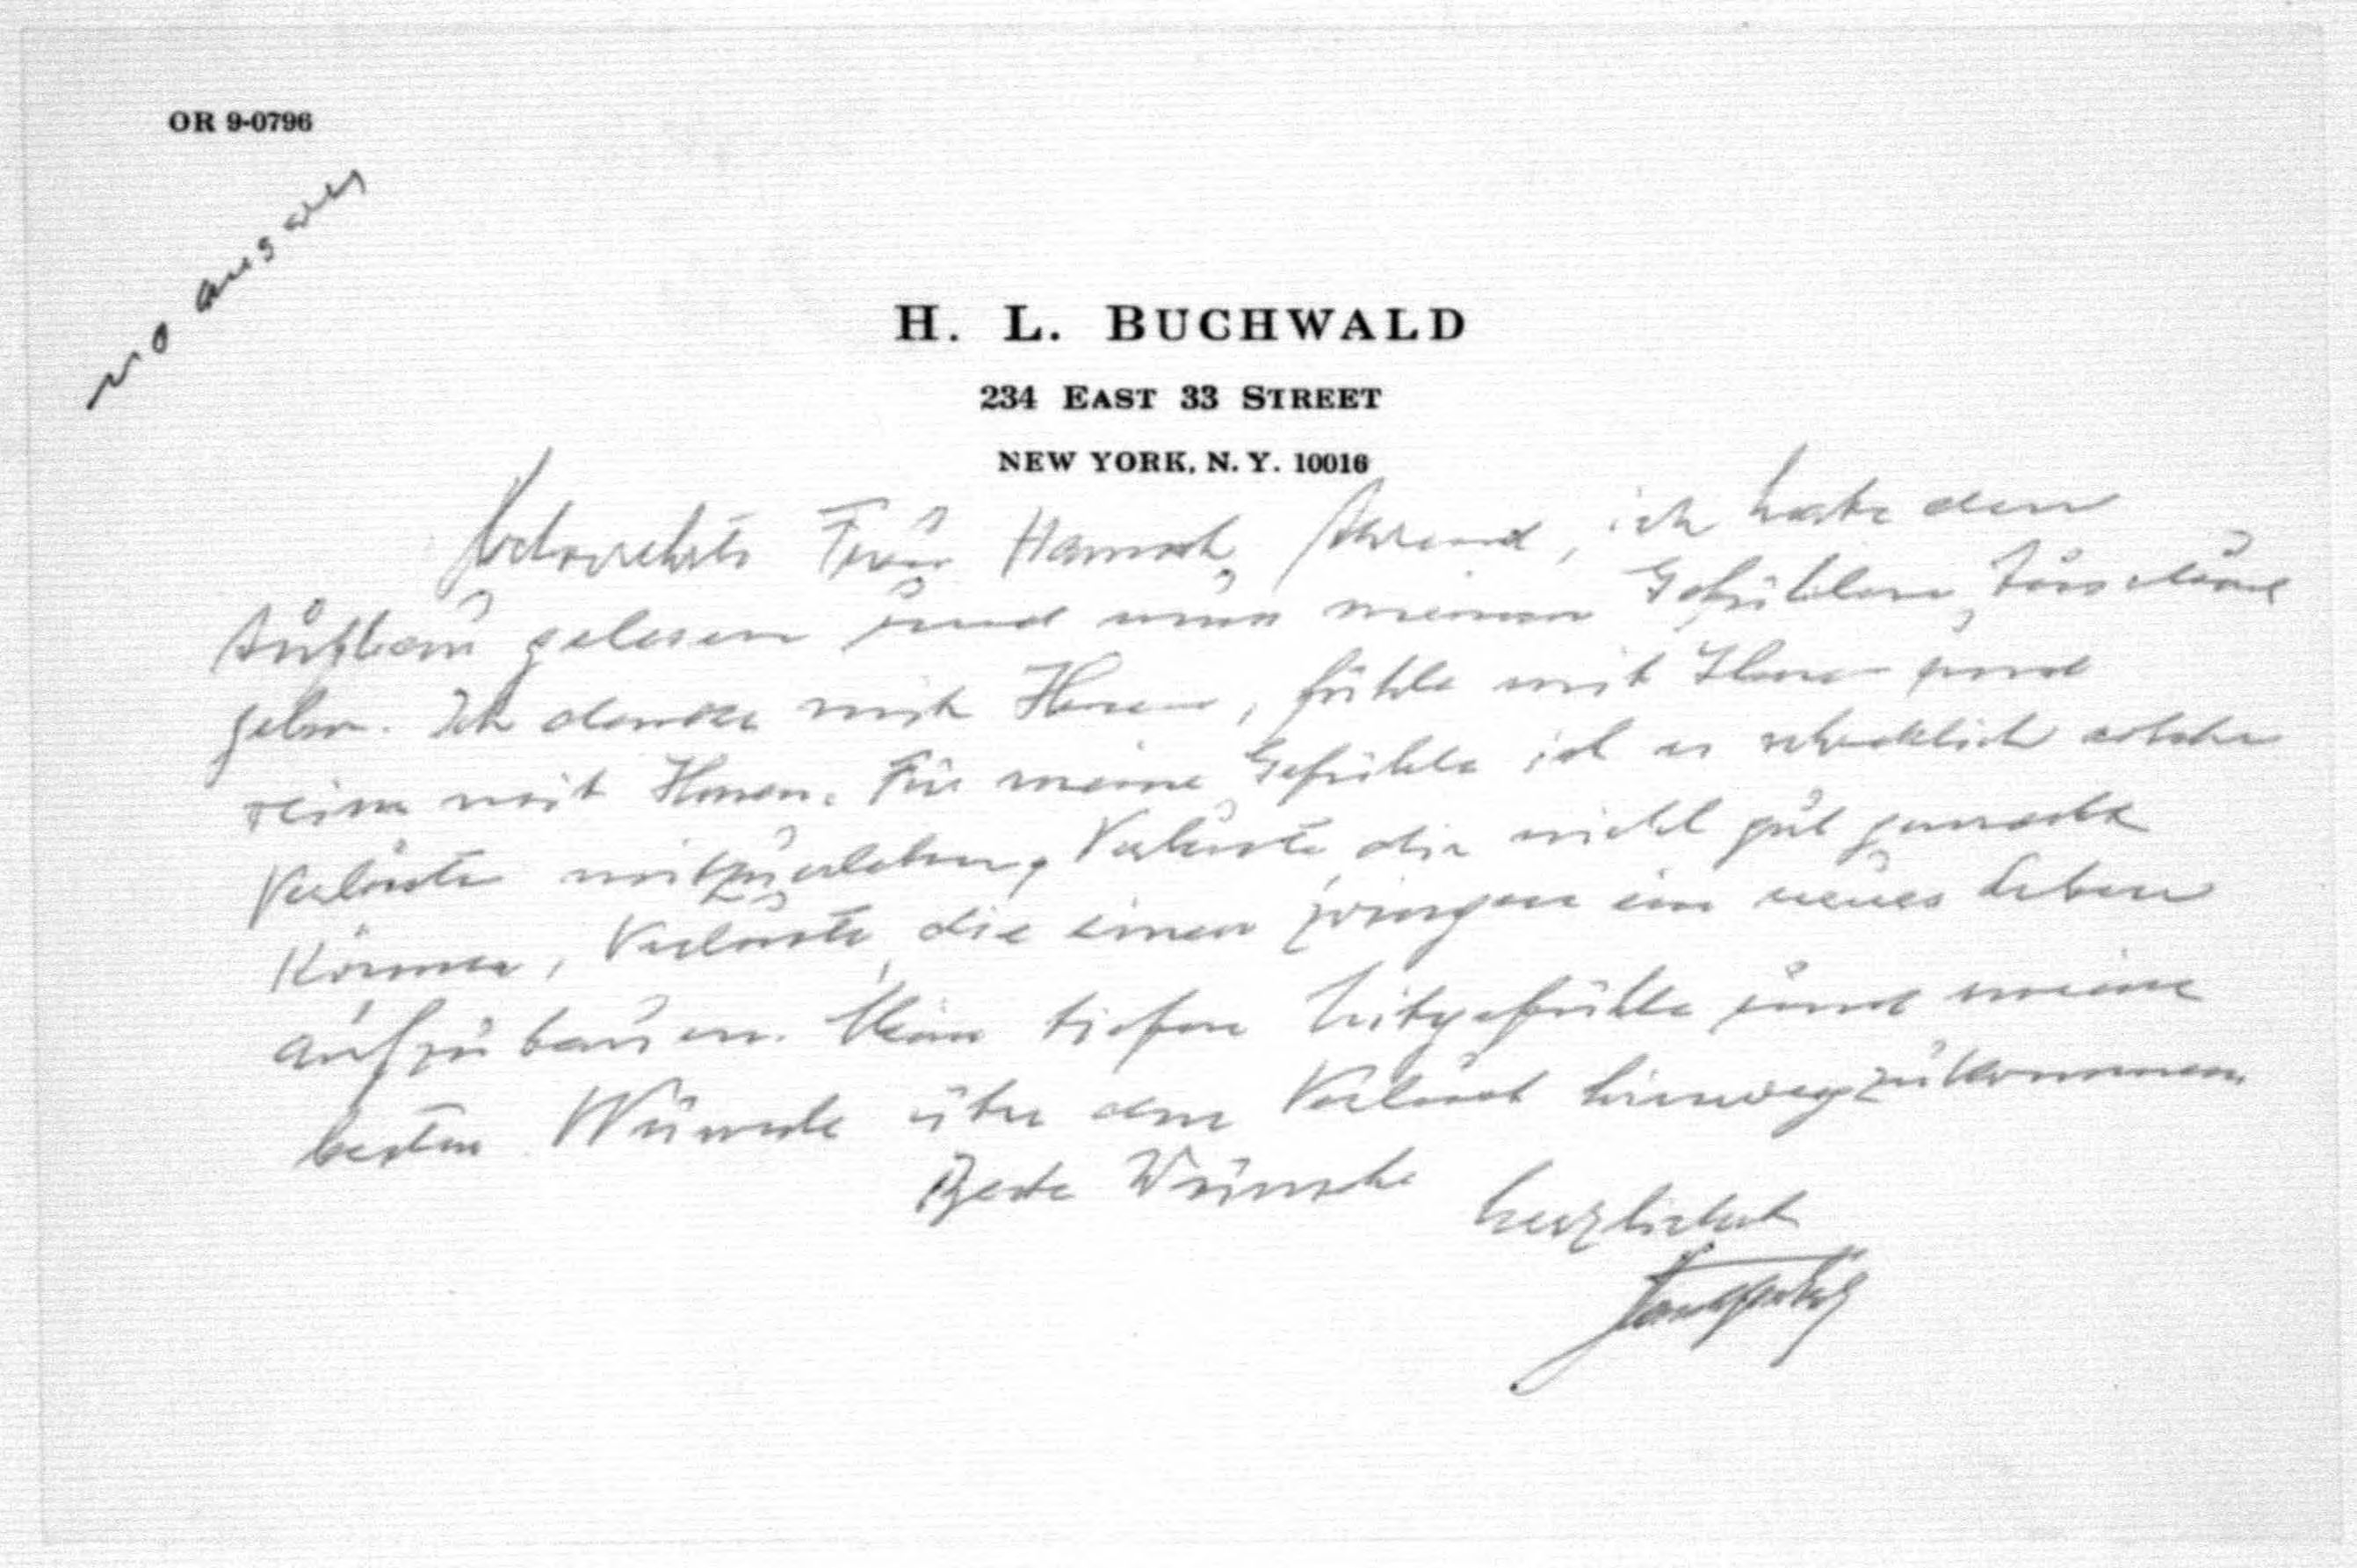 OR 9-0796
no answer
H. L. BUCHWALD
234 EAST 33 STREET
NEW YORK, N. Y. 10016
Frau Hannah Ahrend, ich habe den
Aufbau gelesen und muss meinen Gefühlen Ausdruck
geben. Ich denke mit Ihnen, fühle mit Ihnen und
weine mit Ihnen. Für meine Gefühle ist es schrecklich solche
Verluste mitzuerleben, Verluste, die nicht gut gemacht
können, Verluste, die einen zwingen ein neues Leben
aufzubauen. Mein tiefen Mitgefühle und meine
besten Wünsche über den Verlust hinwegzukommen.
Beste Wünsche herzlichst